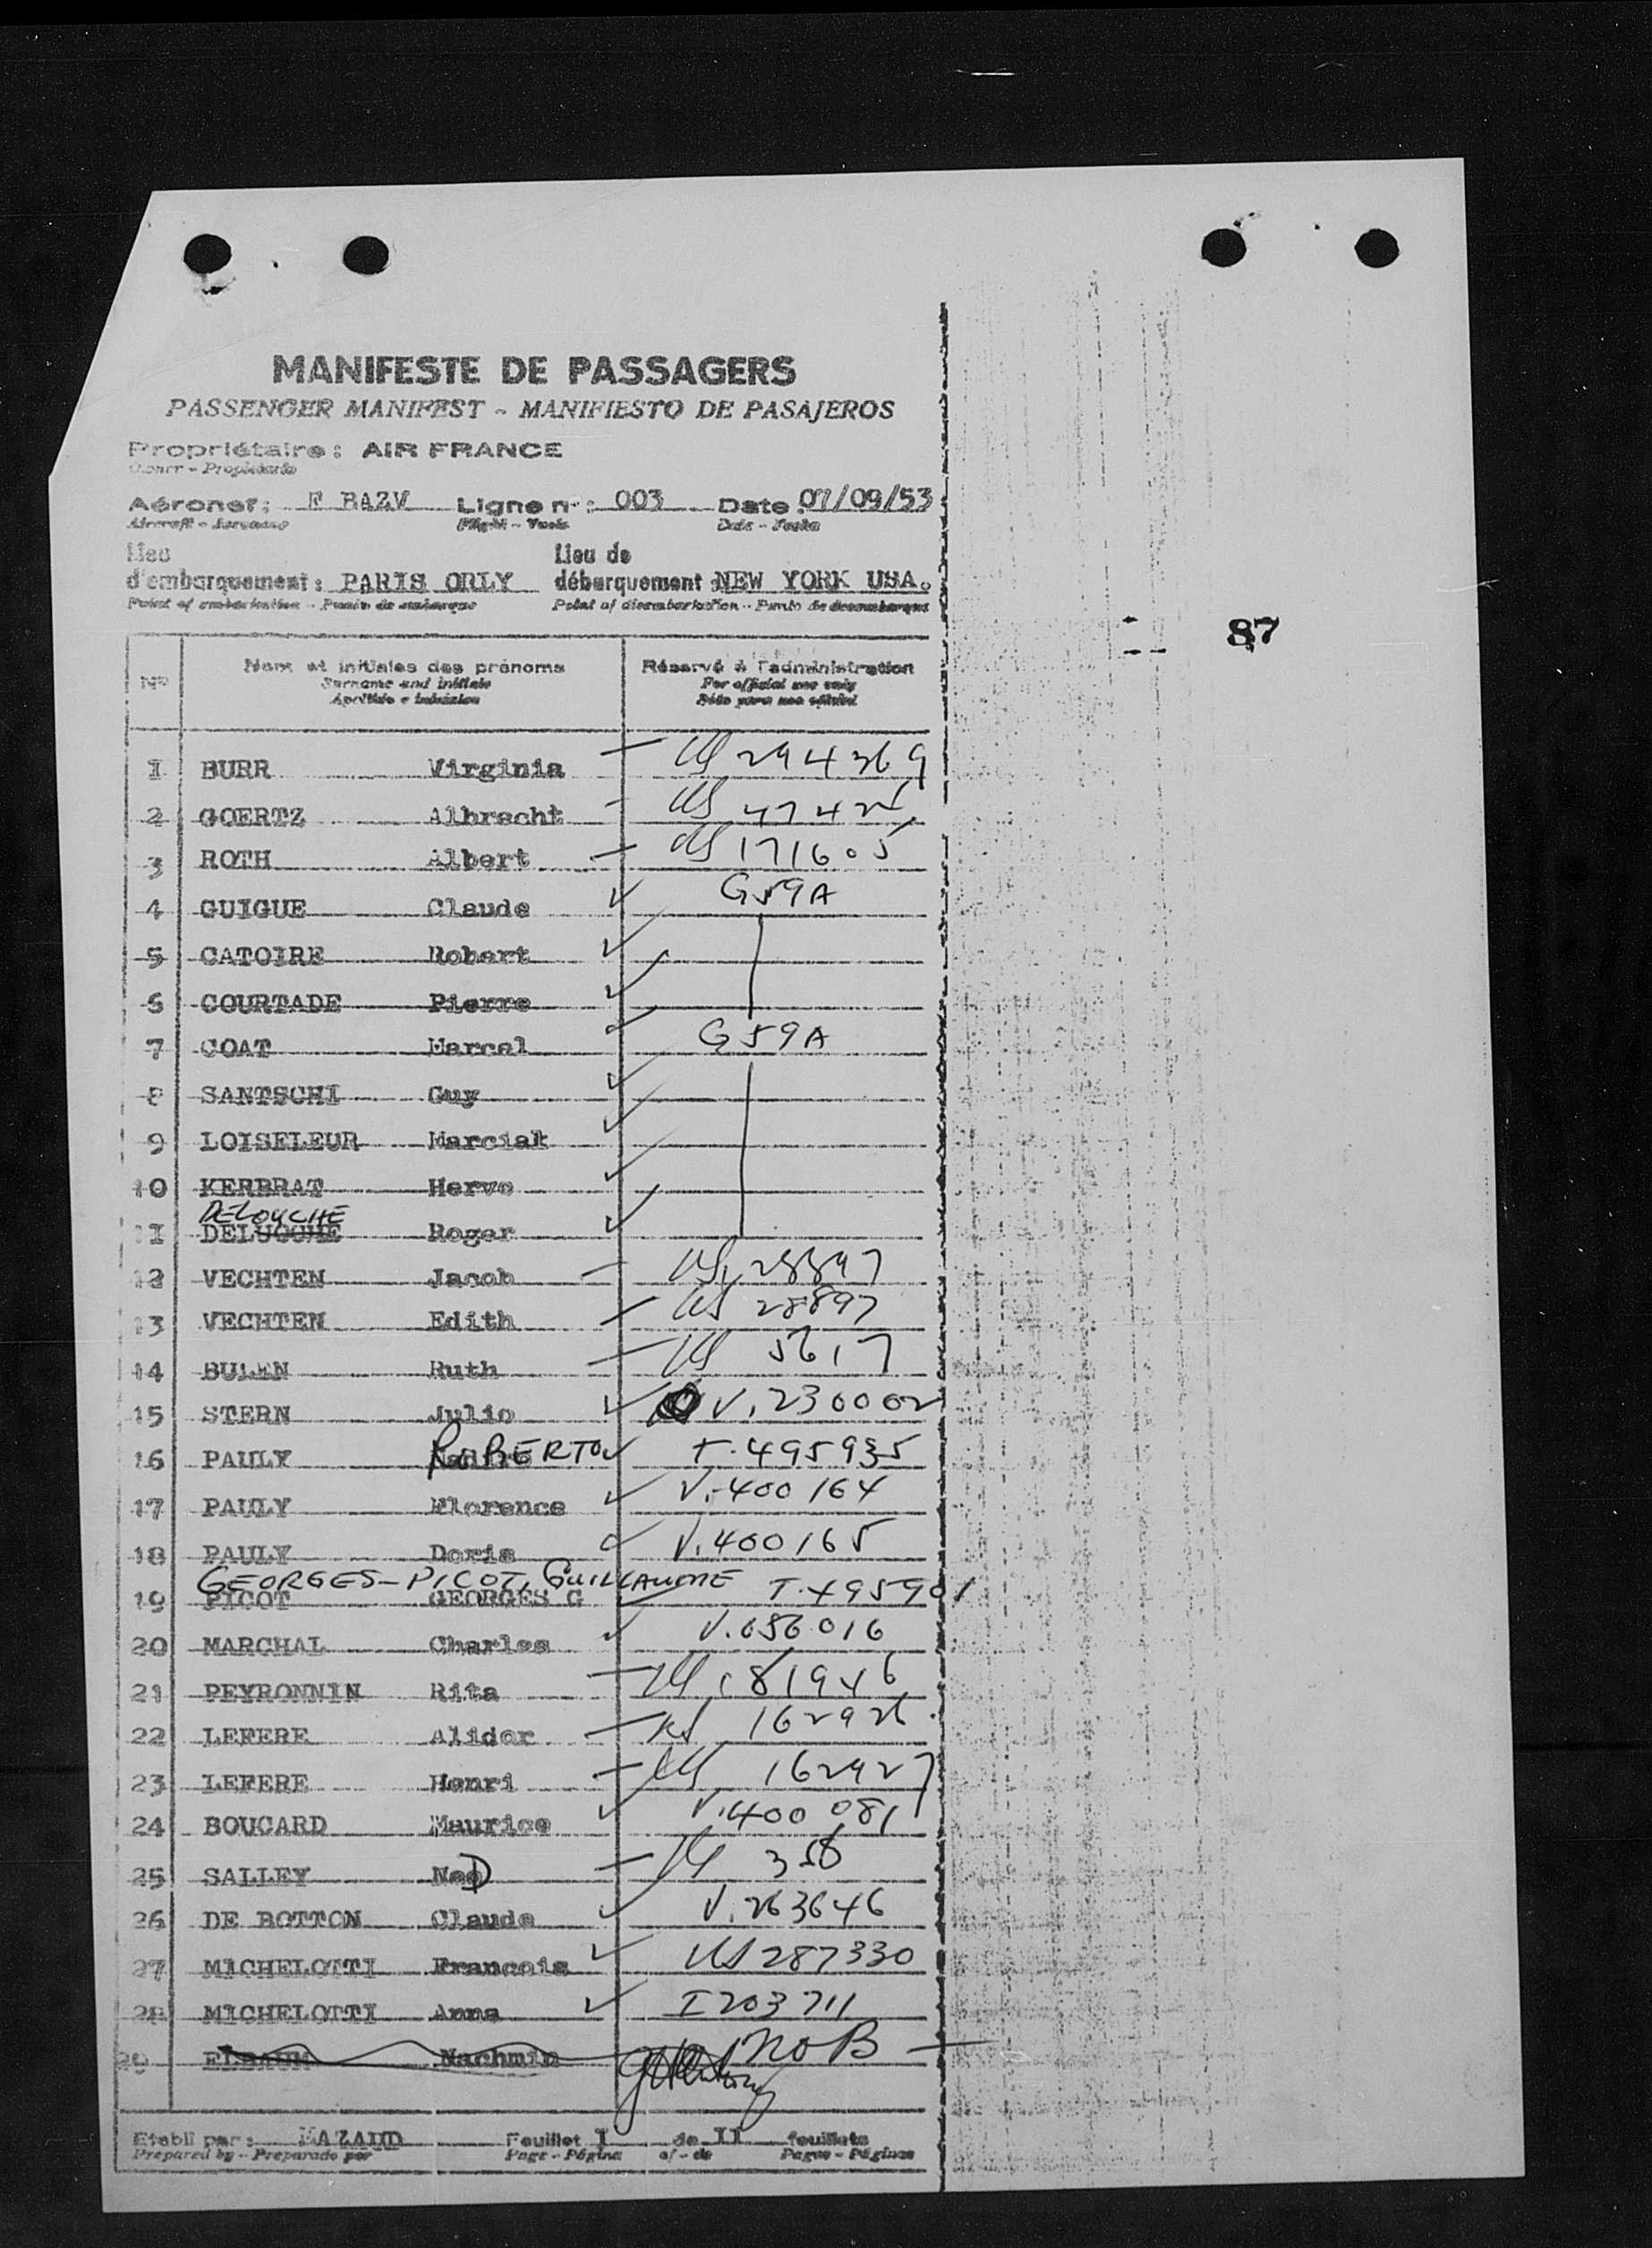 MANIFESTE DE PASSAGERS
PASSENGER MANIFEST - MANIFIESTO DE PASAJEROS
Propriétaire: AIR FRANCE
Owner - Propietario
Aéronef: F BAZV Ligne n°: 003 Date: 07/09/53
Aircraft - Aeronave Flight - Vuelo Date - Fecha
Lieu d'embarquement: PARIS ORLY Lieu de débarquement: NEW YORK USA.
Point of embarkation - Punto de embarque Point of disembarkation - Punto de desembarque
87
N° Nom et initiales des prénoms Réservé à l'administration
Surname and initials For official use only
Apellido e iniciales Sólo para uso oficial
1 BURR Virginia US 294369
2 GOERTZ Albrecht US
3 ROTH Albert US 171605
4 GUIGUE Claude G59A
5 CATOIRE Robert
6 COURTADE Pierre
7 COAT Marcel G59A
8 SANTSCHI Guy
9 LOISELEUR Marcial
10 KERBRAT Herve
DELOUCHE
11 Roger
12 VECHTEN Jacob US 28897
13 VECHTEN Edith US 28897
14 BULEN Ruth US 5617
15 STERN Julio V.230002
16 PAULY ROBERTO T.495935
17 PAULY Florence V.400164
18 PAULY Doris V.400165
GEORGES-PICOT, GUILLAUME
19 PICOT GEORGES G T.495901
20 MARCHAL Charles V.656016
21 PEYRONNIN Rita US
22 LEFERE Alidor US 162926
23 LEFERE Henri US 162927
24 BOUCARD Maurice V.400081
25 SALLEY NeD US
26 DE BOTTON Claude V.263646
27 MICHELOTTI Francois US 287330
28 MICHELOTTI Anna I 203711
29 ELBAUM Nachmin NOB
Etabli par: MAZAUD Feuillet I de II feuillets
Prepared by - Preparado por Page - Página of - de Pages - Páginas